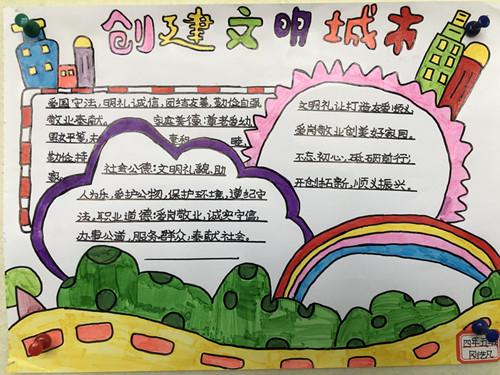 创建文明城市
爱国守法,明礼诚信,团结友善,勤俭自强
敬业奉献。家庭美德:尊老爱幼
男女平等,夫
勤俭持
社会公德:文明礼貌,助
人为乐,爱护公物,保护环境,遵纪守
法,职业道德:爱岗敬业,诚实守信,
办事公道,服务群众,奉献社会。
文明礼让打造友爱顺义
爱岗敬业创美好家园。
不忘初心,砥砺前行;
开创拓新,顺义振兴。
四年五班